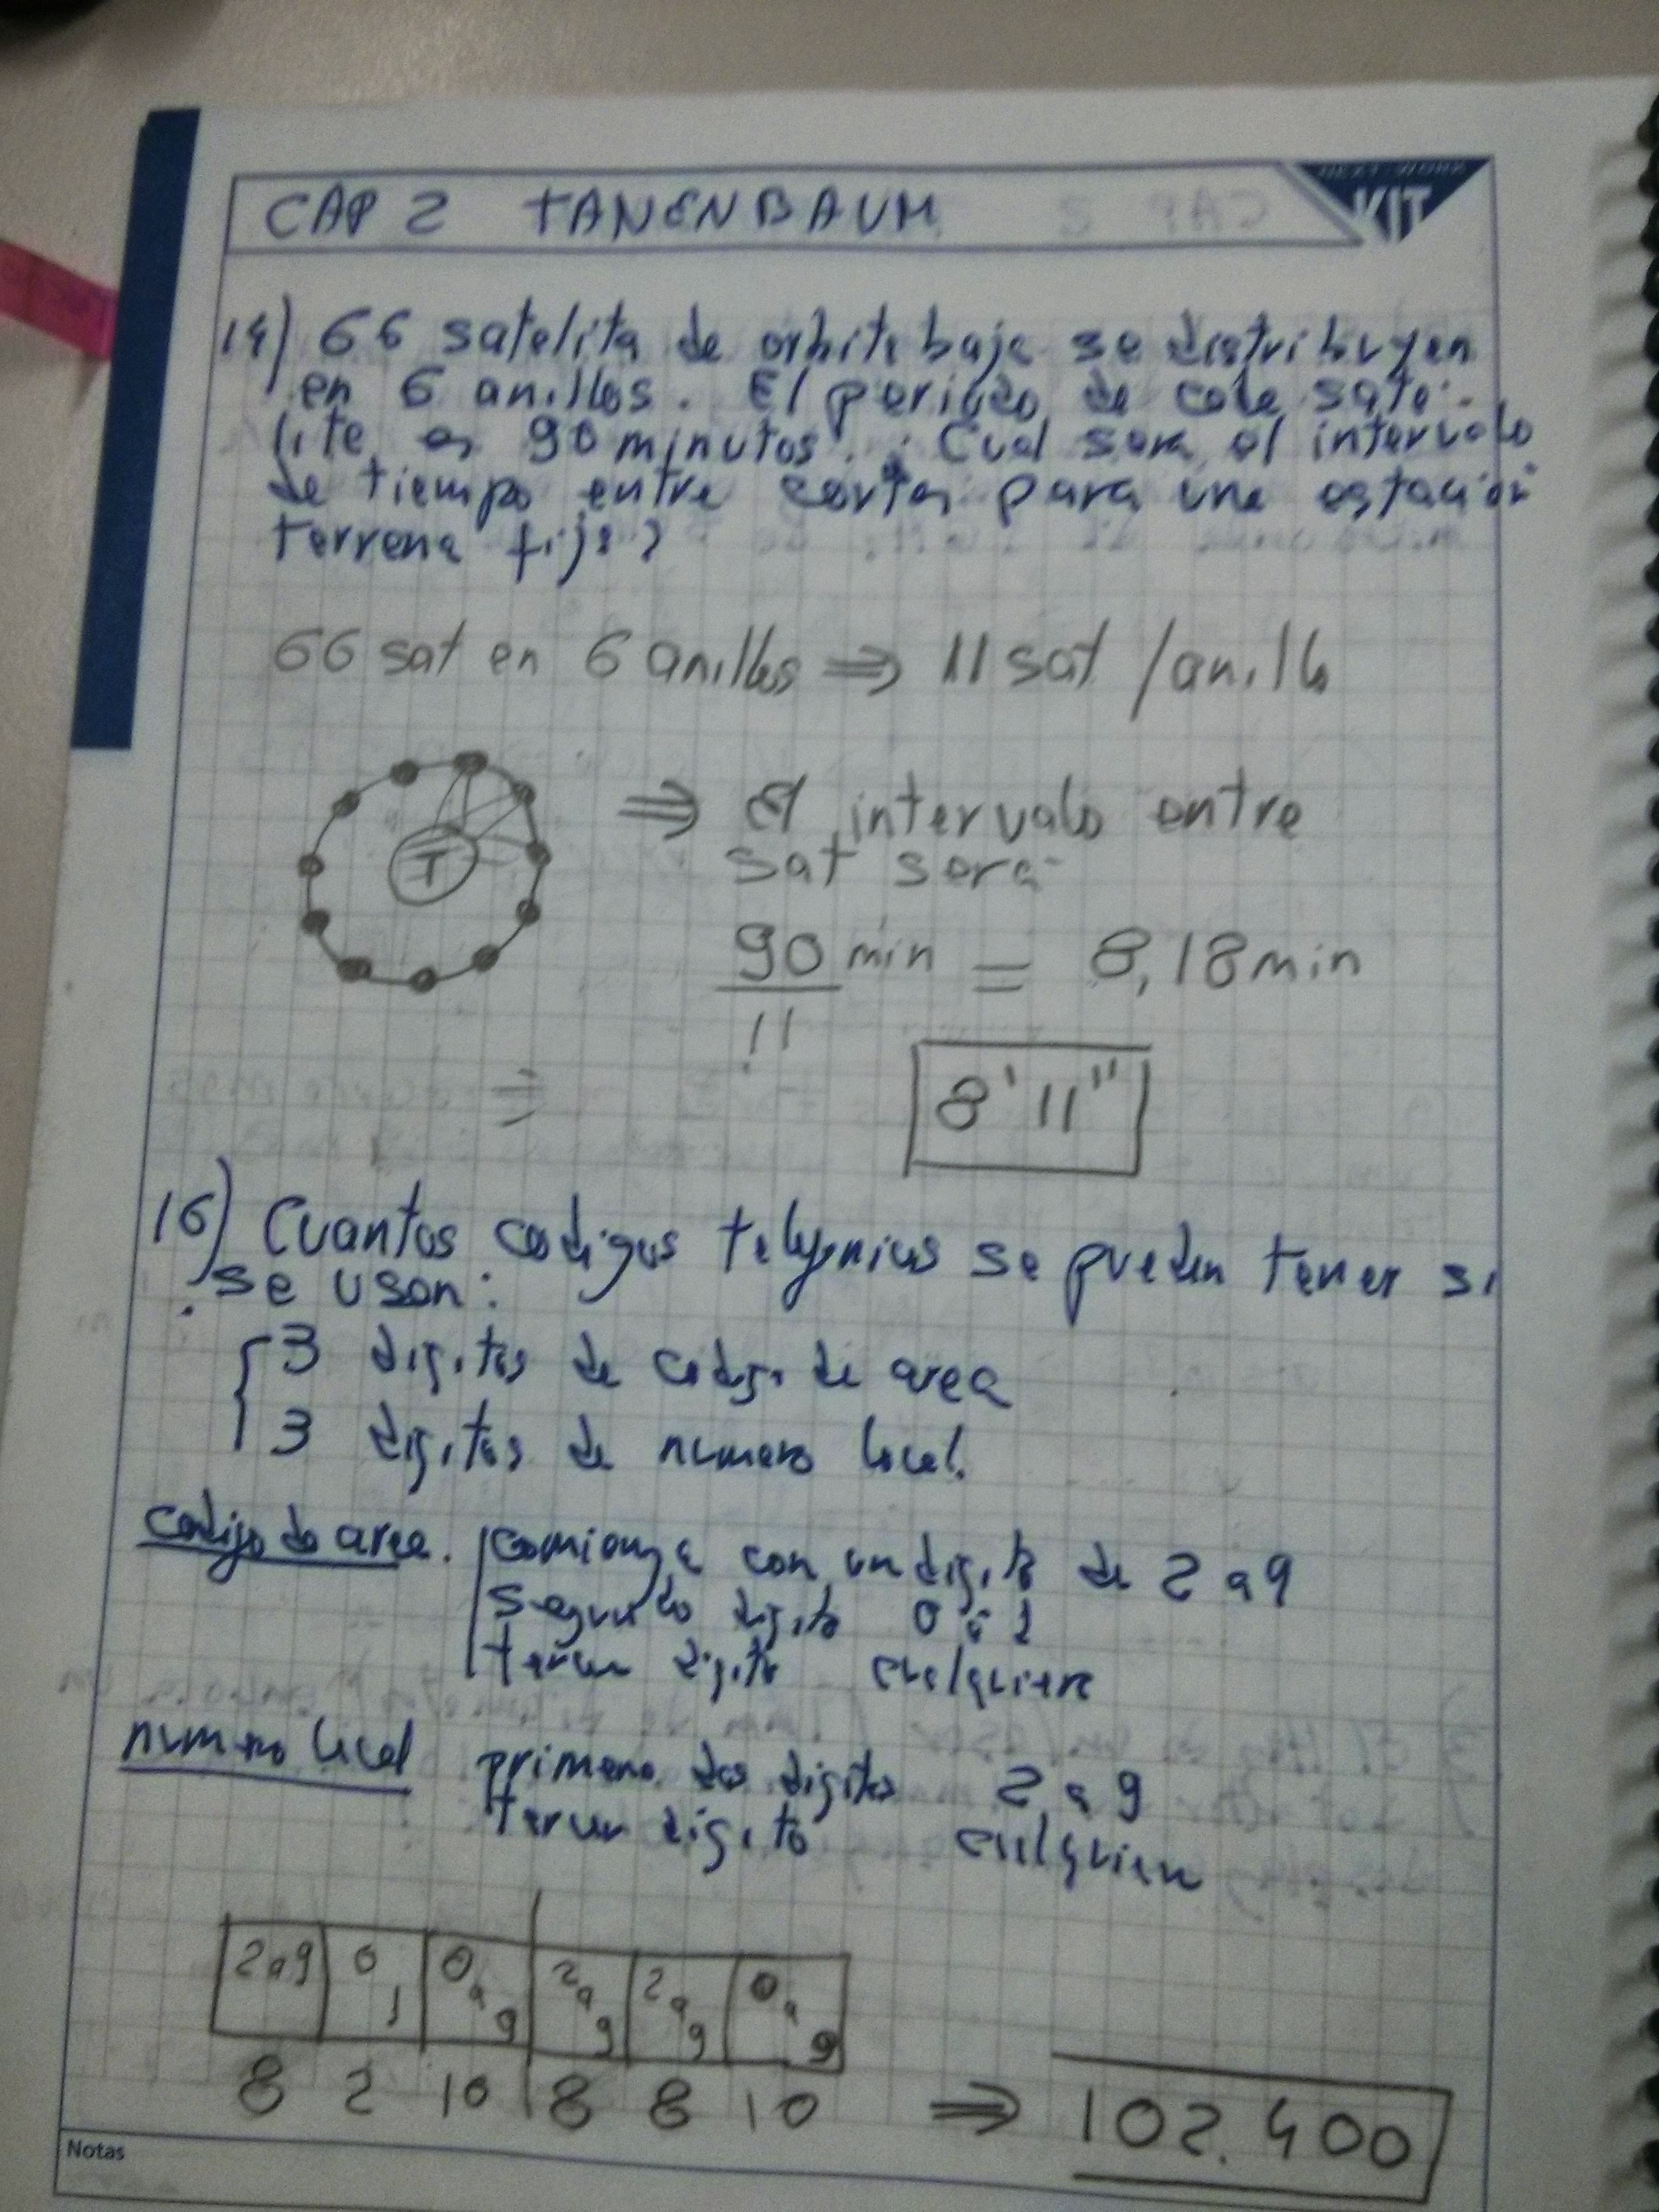 CAP 2 TANENBAUM
KIT
14) 66 satelites de orbita baja se distribuyen
en 6 anillos. El periodo de cada sate-
lite es 90 minutos. ¿Cual sera el intervalo
de tiempo entre cortes para una estación
terrena fija?
66 sat en 6 anillos ⇒ 11 sat /anillo
T
⇒ El intervalo entre
sat sera
90 min = 8,18 min
11
8' 11"
16) Cuantos codigos telefonicos se pueden tener si
se usan:
3 digitos de codigo de area
3 digitos de numero local.
codigo de area. comienza con un digito de 2 a 9
segundo digito 0 ó 1
tercer digito cualquiera
numero local primeros dos digitos 2 a 9
tercer digito cualquiera
2a9 0 1 0a9 2a9 2a9 0a9
8 2 10 8 8 10 ⇒ 102.400
Notas